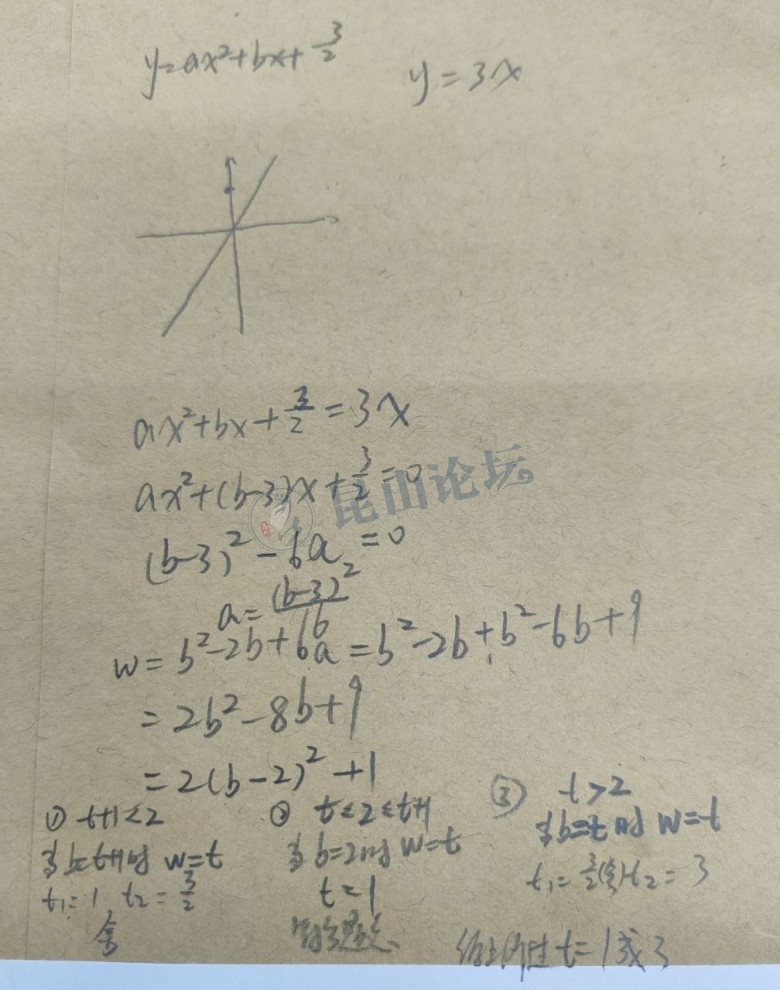 y=ax²+bx+3/2 y=3x
ax²+bx+3/2=3x
ax²+(b-3)x+3/2=0
昆山论坛
(b-3)²-6a=0
a=(b-3)²/6
w=b²-2b+6a=b²-2b+b²-6b+9
=2b²-8b+9
=2(b-2)²+1
① t+1<2
当b=t+1时 w=t
t₁=1 t₂=3/2
舍
② t≤2≤t+1
当b=2时 w=t
t=1
符合题意
③ t>2
当b=t时 w=t
t₁=3/2(舍) t₂=3
综上所述 t=1或3